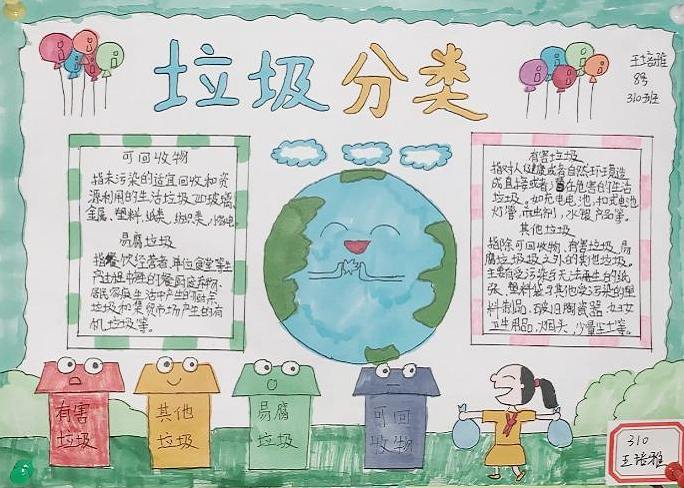 垃圾分类
王培雅
8号
310班
可回收物
指未污染的适宜回收和资
源利用的生活垃圾,如玻璃,
金属、塑料、纸类、纺织类、小家电
易腐垃圾
指餐饮经营者,单位食堂等生
产过程中
居民家庭生活中产生的
垃圾和集贸市场产生的有
机垃圾等。
有害垃圾
指对人体健康或者自然环境造
成直接或者潜在危害的生活
垃圾。如充电电池,扣式电池
灯管,水银产品等。
其他垃圾
指除可回收物,有害垃圾,易
腐垃圾之外的其他垃圾。
主要有受污染与无法再生的纸
张、塑料袋与其他受污染的塑
料制品、破旧陶瓷器、妇女
卫生用品、烟头、少量尘土等。
有害
垃圾
其他
垃圾
易腐
垃圾
可回
收物
310
王培雅